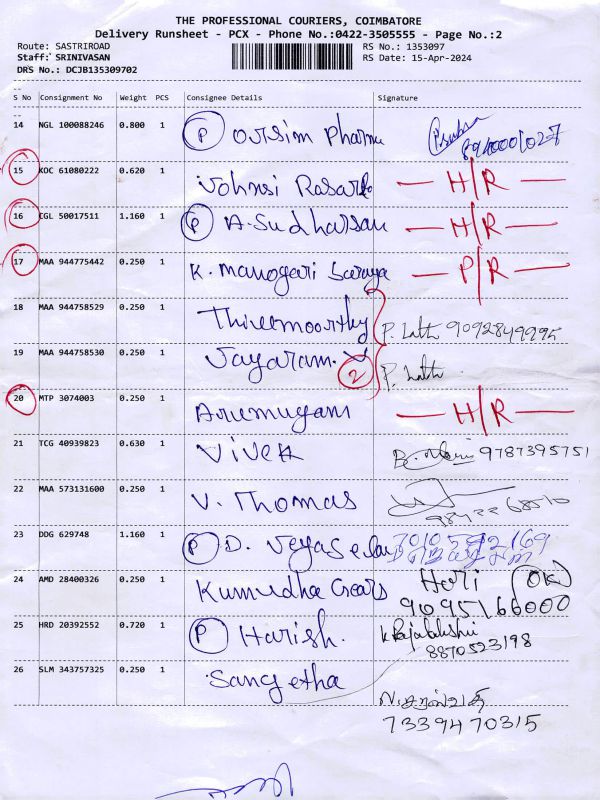 THE PROFESSIONAL COURIERS, COIMBATORE
Delivery Runsheet - PCX - Phone No.:0422-3505555 - Page No.:2
Route: SASTRIROAD RS No.: 1353097
Staff: SRINIVASAN RS Date: 15-Apr-2024
DRS No.: DCJB135309702
S No Consignment No Weight PCS Consignee Details Signature
14 NGL 100088246 0.800 1 (P) oursim Pharma
8940001027
15 KOC 61080222 0.620 1 Johnsi — H/R —
16 CGL 50017511 1.160 1 (P) A. Sudharsan — H/R —
17 MAA 944775442 0.250 1 K. Manogari Saraya — P/R —
18 MAA 944758529 0.250 1 Thirumoorthy P. Latti 9092849995
19 MAA 944758530 0.250 1 Jayaram. V (2) P. Latti
20 MTP 3074003 0.250 1 Arumugam — H/R —
21 TCG 40939823 0.630 1 Vivek B. Mani 9787395751
22 MAA 573131600 0.250 1 V. Thomas
23 DDG 629748 1.160 1 (P) D.
24 AMD 28400326 0.250 1 Kumudha Gears Hari (OK)
9095166000
25 HRD 20392552 0.720 1 (P) Harish. K Rajalakshmi
8870523198
26 SLM 343757325 0.250 1 Sangetha
7339470315